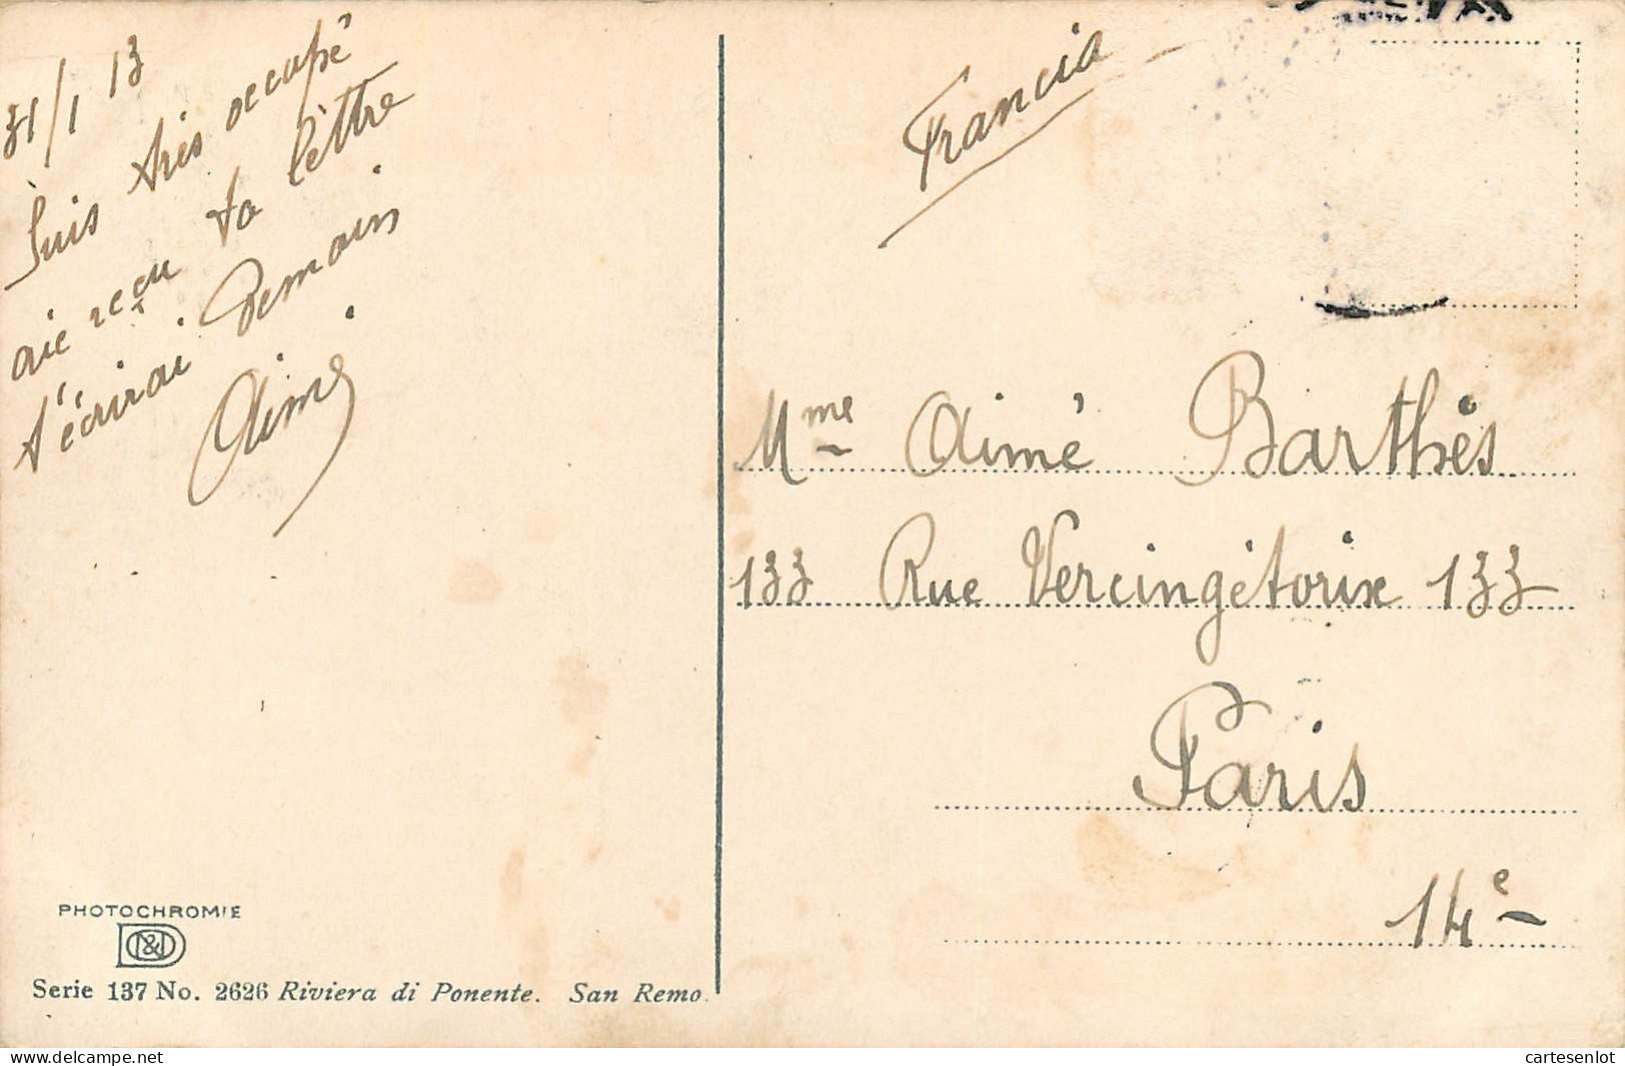 31/1 13
Suis très occupé
aie reçu ta lèttre
t'écrirai Demain.
Aimé
Francia
Mme Aimé Barthès
133 Rue Vercingétorix 133
Paris
14e
PHOTOCHROMIE
D&D
Serie 137 No. 2626 Riviera di Ponente. San Remo.
www.delcampe.net
cartesenlot